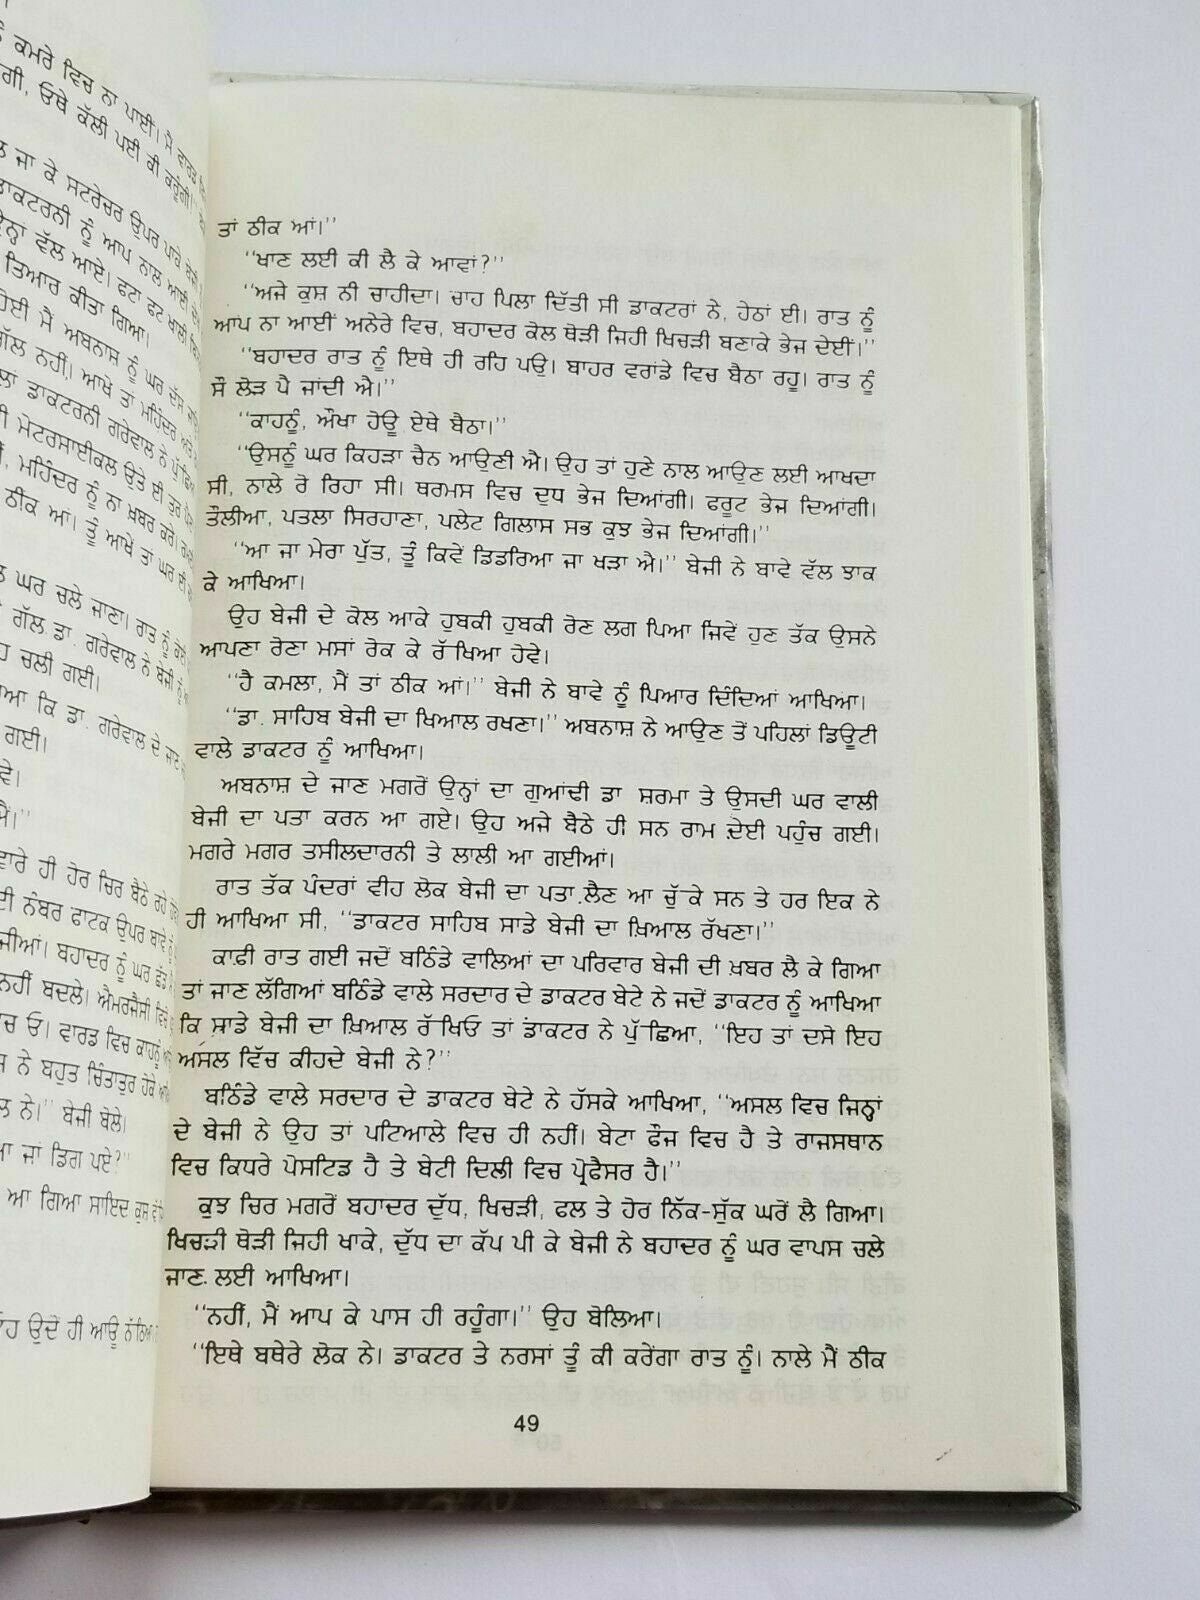 ਨੂੰ ਕਮਰੇ ਵਿਚ ਨਾ ਪਾਈਂ। ਮੈਂ ਵਾਰਡ
ਓਥੇ ਕੱਲੀ ਪਈ ਕੀ ਕਰੂੰਗੀ।''
ਜਾ ਕੇ ਸਟਰੇਚਰ ਉਪਰ ਪਾਕੇ ਬੇਜੀ
ਡਾਕਟਰਨੀ ਨੂੰ ਆਪ ਨਾਲ ਆਈ।
ਵੱਲ ਆਏ। ਫਟਾ ਫਟ ਖਾਲੀ
ਤਿਆਰ ਕੀਤਾ ਗਿਆ।
ਮੈਂ ਅਬਨਾਸ਼ ਨੂੰ ਘਰ ਦੱਸ
ਗੱਲ ਨਹੀਂ। ਆਖੇ ਤਾਂ ਮਹਿੰਦਰ ਅਤੇ
ਡਾਕਟਰਨੀ ਗਰੇਵਾਲ ਨੇ ਪੁੱਛਿਆ
ਮੋਟਰਸਾਈਕਲ ਉਤੇ ਈ ਤੁਰ
ਮਹਿੰਦਰ ਨੂੰ ਨਾ ਖ਼ਬਰ ਕਰੇ।
ਠੀਕ ਆਂ। ਤੂੰ ਆਖੇਂ ਤਾਂ ਘਰ ਈ
ਘਰ ਚਲੇ ਜਾਣਾ। ਰਾਤ ਨੂੰ ਕੋਈ
ਗੱਲ ਡਾ. ਗਰੇਵਾਲ ਨੇ ਬੇਜੀ ਨੂੰ
ਚਲੀ ਗਈ।
ਕਿ ਡਾ. ਗਰੇਵਾਲ ਦੇ ਜਾਣ
ਗਈ।
ਹੀ ਹੋਰ ਚਿਰ ਬੈਠੇ ਰਹੇ
ਨੰਬਰ ਫਾਟਕ ਉਪਰ ਬਾਵੇ ਨੂੰ
ਬਹਾਦਰ ਨੂੰ ਘਰ ਛੱਡ
ਨਹੀਂ ਬਦਲੇ। ਐਮਰਜੈਂਸੀ ਵਿਚੋਂ
ਓ। ਵਾਰਡ ਵਿਚ ਕਾਹਨੂੰ
ਨੇ ਬਹੁਤ ਚਿੰਤਾਤੁਰ ਹੋਕੇ
ਨੇ।'' ਬੇਜੀ ਬੋਲੇ।
ਜਾਂ ਡਿਗ ਪਏ?''
ਆ ਗਿਆ ਸਾਇਦ ਕੁਸ਼
ਉਦੋਂ ਹੀ ਆਊ ਨੱਠਿਆ
ਤਾਂ ਠੀਕ ਆਂ।''
''ਖਾਣ ਲਈ ਕੀ ਲੈ ਕੇ ਆਵਾਂ?''
''ਅਜੇ ਕੁਸ਼ ਨੀ ਚਾਹੀਦਾ। ਚਾਹ ਪਿਲਾ ਦਿੱਤੀ ਸੀ ਡਾਕਟਰਾਂ ਨੇ, ਹੇਠਾਂ ਈ। ਰਾਤ ਨੂੰ
ਆਪ ਨਾ ਆਈਂ ਅਨੇਰੇ ਵਿਚ, ਬਹਾਦਰ ਕੋਲ ਥੋੜੀ ਜਿਹੀ ਖਿਚੜੀ ਬਣਾਕੇ ਭੇਜ ਦੇਈਂ।''
''ਬਹਾਦਰ ਰਾਤ ਨੂੰ ਇਥੇ ਹੀ ਰਹਿ ਪਊ। ਬਾਹਰ ਵਰਾਂਡੇ ਵਿਚ ਬੈਠਾ ਰਹੂ। ਰਾਤ ਨੂੰ
ਸੌ ਲੋੜ ਪੈ ਜਾਂਦੀ ਐ।''
''ਕਾਹਨੂੰ, ਔਖਾ ਹੋਊ ਏਥੇ ਬੈਠਾ।''
''ਉਸਨੂੰ ਘਰ ਕਿਹੜਾ ਚੈਨ ਆਉਣੀ ਐ। ਉਹ ਤਾਂ ਹੁਣੇ ਨਾਲ ਆਉਣ ਲਈ ਆਖਦਾ
ਸੀ, ਨਾਲੇ ਰੋ ਰਿਹਾ ਸੀ। ਥਰਮਸ ਵਿਚ ਦੁਧ ਭੇਜ ਦਿਆਂਗੀ। ਫਰੂਟ ਭੇਜ ਦਿਆਂਗੀ।
ਤੌਲੀਆ, ਪਤਲਾ ਸਿਰਹਾਣਾ, ਪਲੇਟ ਗਿਲਾਸ ਸਭ ਕੁਝ ਭੇਜ ਦਿਆਂਗੀ।''
''ਆ ਜਾ ਮੇਰਾ ਪੁੱਤ, ਤੂੰ ਕਿਵੇਂ ਡਿਡਰਿਆ ਜਾ ਖੜਾ ਐ।'' ਬੇਜੀ ਨੇ ਬਾਵੇ ਵੱਲ ਝਾਕ
ਕੇ ਆਖਿਆ।
ਉਹ ਬੇਜੀ ਦੇ ਕੋਲ ਆਕੇ ਹੁਬਕੀ ਹੁਬਕੀ ਰੋਣ ਲਗ ਪਿਆ ਜਿਵੇਂ ਹੁਣ ਤੱਕ ਉਸਨੇ
ਆਪਣਾ ਰੋਣਾ ਮਸਾਂ ਰੋਕ ਕੇ ਰੱਖਿਆ ਹੋਵੇ।
''ਹੈ ਕਮਲਾ, ਮੈਂ ਤਾਂ ਠੀਕ ਆਂ।'' ਬੇਜੀ ਨੇ ਬਾਵੇ ਨੂੰ ਪਿਆਰ ਦਿੰਦਿਆਂ ਆਖਿਆ।
''ਡਾ. ਸਾਹਿਬ ਬੇਜੀ ਦਾ ਖਿਆਲ ਰਖਣਾ।'' ਅਬਨਾਸ਼ ਨੇ ਆਉਣ ਤੋਂ ਪਹਿਲਾਂ ਡਿਊਟੀ
ਵਾਲੇ ਡਾਕਟਰ ਨੂੰ ਆਖਿਆ।
ਅਬਨਾਸ਼ ਦੇ ਜਾਣ ਮਗਰੋਂ ਉਨ੍ਹਾਂ ਦਾ ਗੁਆਂਢੀ ਡਾ ਸ਼ਰਮਾ ਤੇ ਉਸਦੀ ਘਰ ਵਾਲੀ
ਬੇਜੀ ਦਾ ਪਤਾ ਕਰਨ ਆ ਗਏ। ਉਹ ਅਜੇ ਬੈਠੇ ਹੀ ਸਨ ਰਾਮ ਦੇਈ ਪਹੁੰਚ ਗਈ।
ਮਗਰੇ ਮਗਰ ਤਸੀਲਦਾਰਨੀ ਤੇ ਲਾਲੀ ਆ ਗਈਆਂ।
ਰਾਤ ਤੱਕ ਪੰਦਰਾਂ ਵੀਹ ਲੋਕ ਬੇਜੀ ਦਾ ਪਤਾ ਲੈਣ ਆ ਚੁੱਕੇ ਸਨ ਤੇ ਹਰ ਇਕ ਨੇ
ਹੀ ਆਖਿਆ ਸੀ, ''ਡਾਕਟਰ ਸਾਹਿਬ ਸਾਡੇ ਬੇਜੀ ਦਾ ਖ਼ਿਆਲ ਰੱਖਣਾ।''
ਕਾਫ਼ੀ ਰਾਤ ਗਈ ਜਦੋਂ ਬਠਿੰਡੇ ਵਾਲਿਆਂ ਦਾ ਪਰਿਵਾਰ ਬੇਜੀ ਦੀ ਖ਼ਬਰ ਲੈ ਕੇ ਗਿਆ
ਤਾਂ ਜਾਣ ਲੱਗਿਆਂ ਬਠਿੰਡੇ ਵਾਲੇ ਸਰਦਾਰ ਦੇ ਡਾਕਟਰ ਬੇਟੇ ਨੇ ਜਦੋਂ ਡਾਕਟਰ ਨੂੰ ਆਖਿਆ
ਕਿ ਸਾਡੇ ਬੇਜੀ ਦਾ ਖ਼ਿਆਲ ਰੱਖਿਓ ਤਾਂ ਡਾਕਟਰ ਨੇ ਪੁੱਛਿਆ, ''ਇਹ ਤਾਂ ਦਸੋ ਇਹ
ਅਸਲ ਵਿੱਚ ਕੀਹਦੇ ਬੇਜੀ ਨੇ?''
ਬਠਿੰਡੇ ਵਾਲੇ ਸਰਦਾਰ ਦੇ ਡਾਕਟਰ ਬੇਟੇ ਨੇ ਹੱਸਕੇ ਆਖਿਆ, ''ਅਸਲ ਵਿਚ ਜਿਨ੍ਹਾਂ
ਦੇ ਬੇਜੀ ਨੇ ਉਹ ਤਾਂ ਪਟਿਆਲੇ ਵਿਚ ਹੀ ਨਹੀਂ। ਬੇਟਾ ਫੌਜ ਵਿਚ ਹੈ ਤੇ ਰਾਜਸਥਾਨ
ਵਿਚ ਕਿਧਰੇ ਪੋਸਟਿਡ ਹੈ ਤੇ ਬੇਟੀ ਦਿਲੀ ਵਿਚ ਪ੍ਰੋਫੈਸਰ ਹੈ।''
ਕੁਝ ਚਿਰ ਮਗਰੋਂ ਬਹਾਦਰ ਦੁੱਧ, ਖਿਚੜੀ, ਫਲ ਤੇ ਹੋਰ ਨਿੱਕ-ਸੁੱਕ ਘਰੋਂ ਲੈ ਗਿਆ।
ਖਿਚੜੀ ਥੋੜੀ ਜਿਹੀ ਖਾਕੇ, ਦੁੱਧ ਦਾ ਕੱਪ ਪੀ ਕੇ ਬੇਜੀ ਨੇ ਬਹਾਦਰ ਨੂੰ ਘਰ ਵਾਪਸ ਚਲੇ
ਜਾਣ ਲਈ ਆਖਿਆ।
''ਨਹੀਂ, ਮੈਂ ਆਪ ਕੇ ਪਾਸ ਹੀ ਰਹੂੰਗਾ।'' ਉਹ ਬੋਲਿਆ।
''ਇਥੇ ਬਥੇਰੇ ਲੋਕ ਨੇ। ਡਾਕਟਰ ਤੇ ਨਰਸਾਂ ਤੂੰ ਕੀ ਕਰੇਂਗਾ ਰਾਤ ਨੂੰ। ਨਾਲੇ ਮੈਂ ਠੀਕ
49